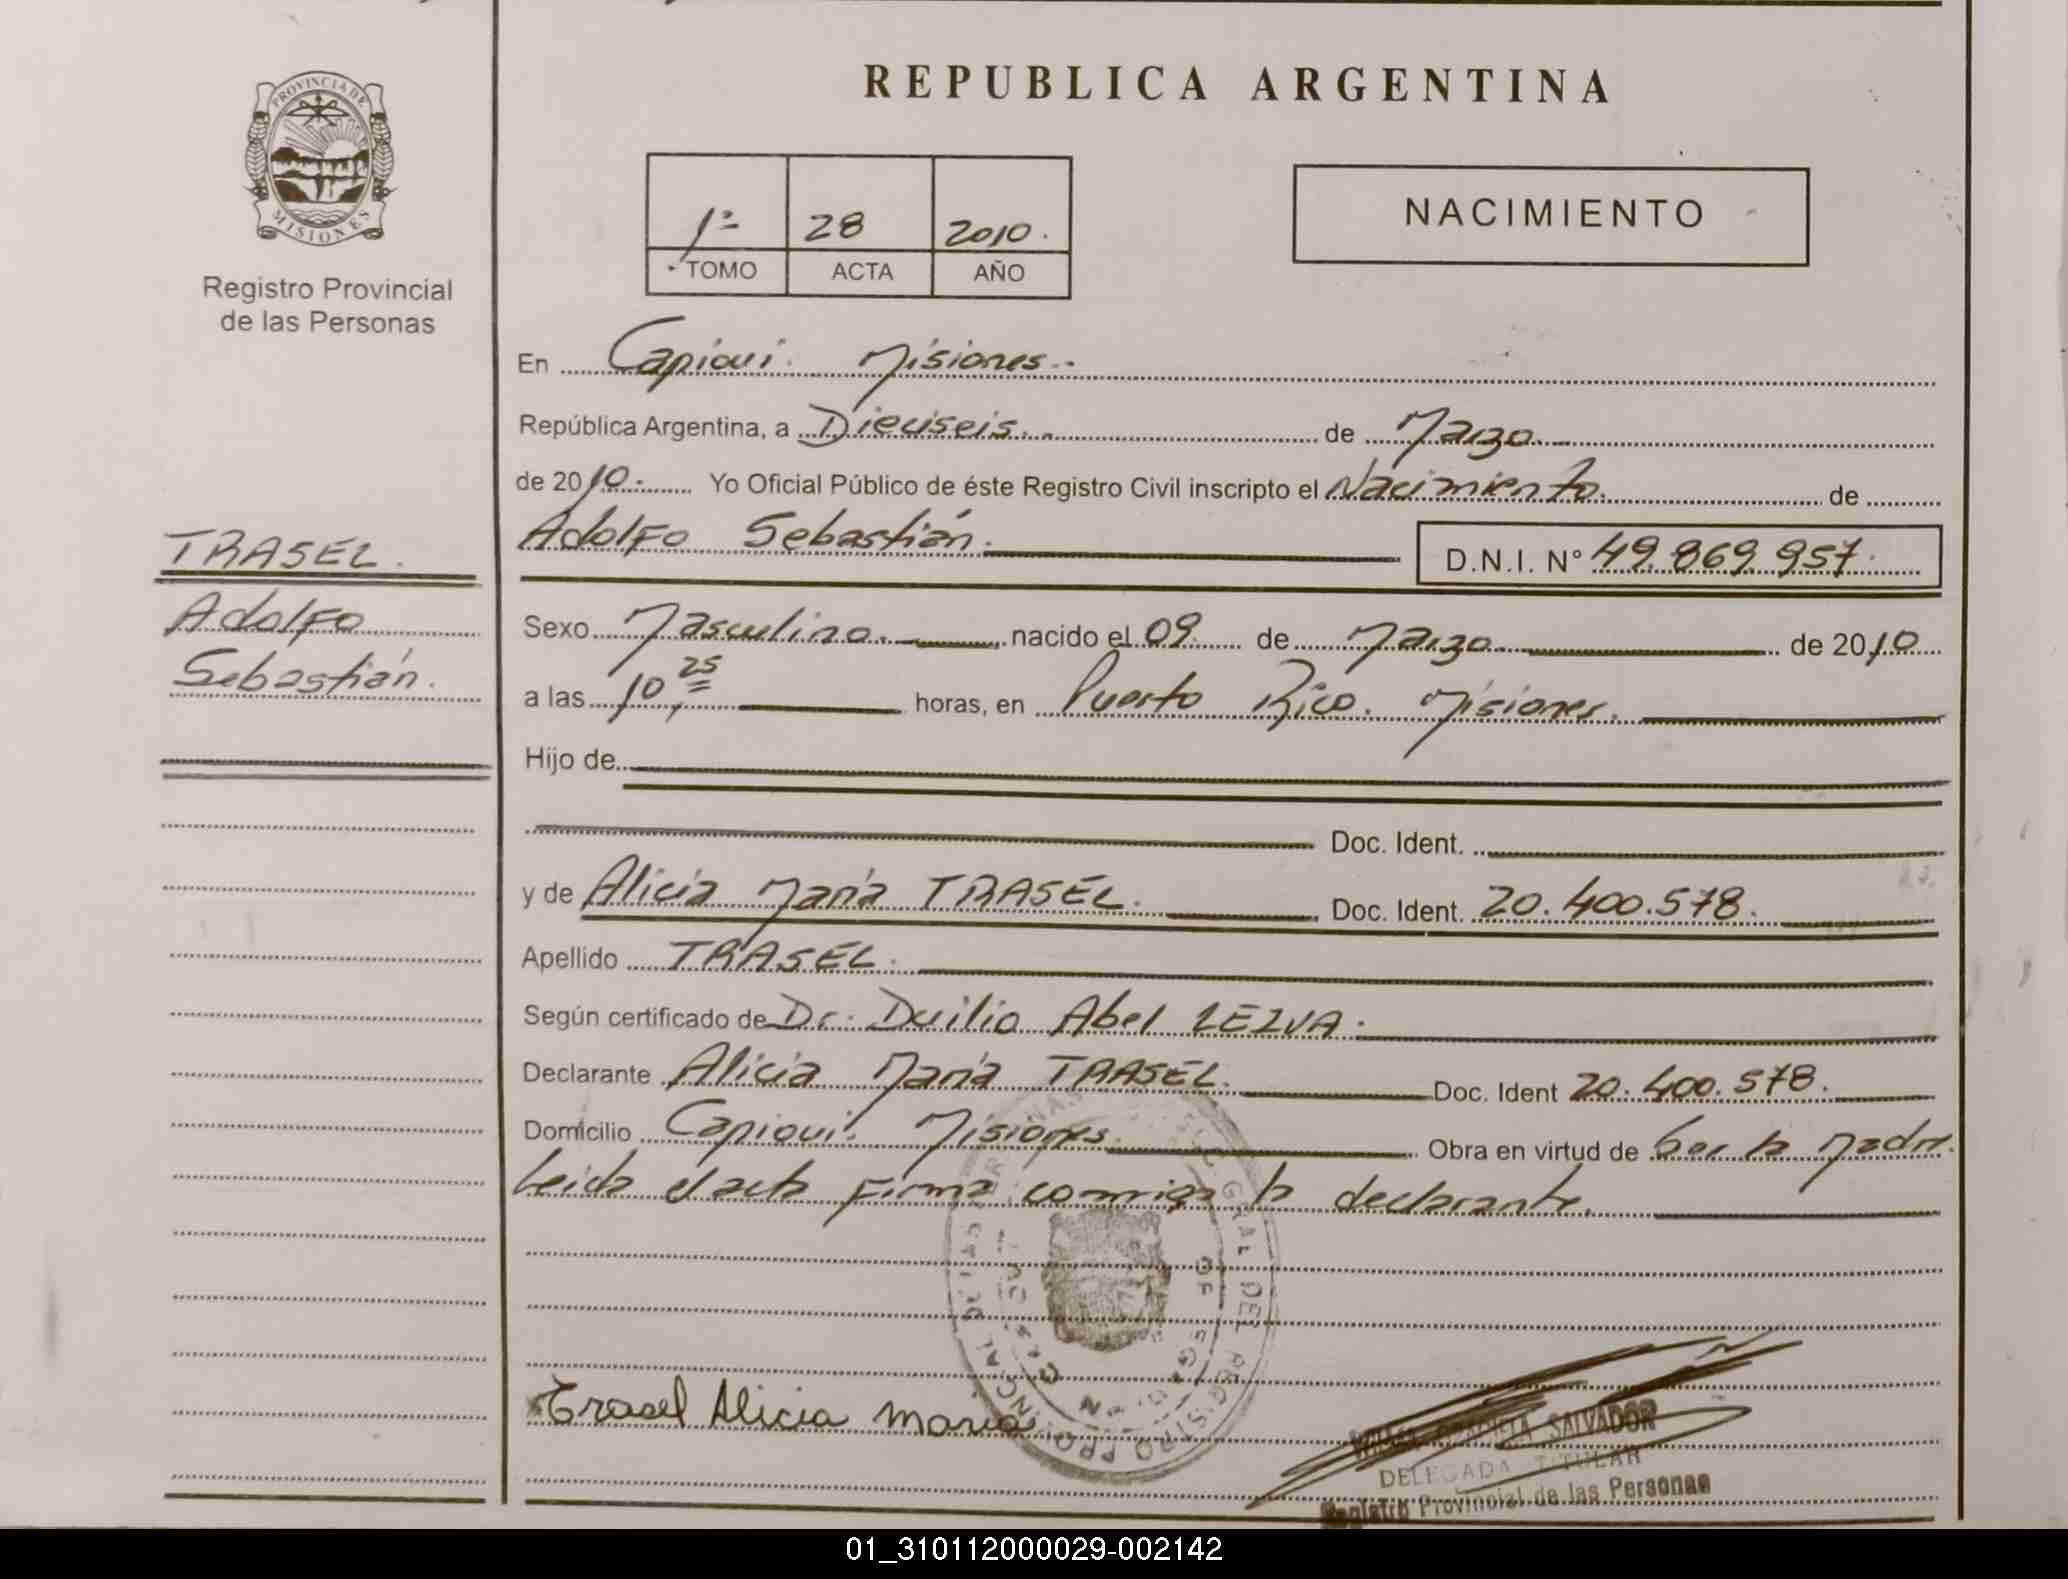 REPUBLICA ARGENTINA
PROVINCIA DE
MISIONES
Registro Provincial
de las Personas
1º 28 2010.
TOMO ACTA AÑO
NACIMIENTO
En Capioví. Misiones.-
República Argentina, a Dieciseis.. de Marzo
de 2010. Yo Oficial Público de éste Registro Civil inscripto el Nacimiento. de
Adolfo Sebastián. D.N.I. Nº 49.869.957.
TRASEL.
Adolfo
Sebastián.
Sexo Masculino. nacido el 09. de Marzo. de 2010
a las 10,25 horas, en Puerto Rico. Misiones.
Hijo de
Doc. Ident.
y de Alicia María TRASEL. Doc. Ident. 20.400.578.
Apellido TRASEL.
Según certificado de Dr. Duilio Abel
Declarante Alicia María TRASEL. Doc. Ident 20.400.578.
Domicilio Capioví. Misiones. Obra en virtud de Ser la Madre.
Leída el acta firma conmigo la declarante.
Trasel Alicia maria
SALVADOR
DELEGADA TITULAR
Registro Provincial de las Personas
01_310112000029-002142